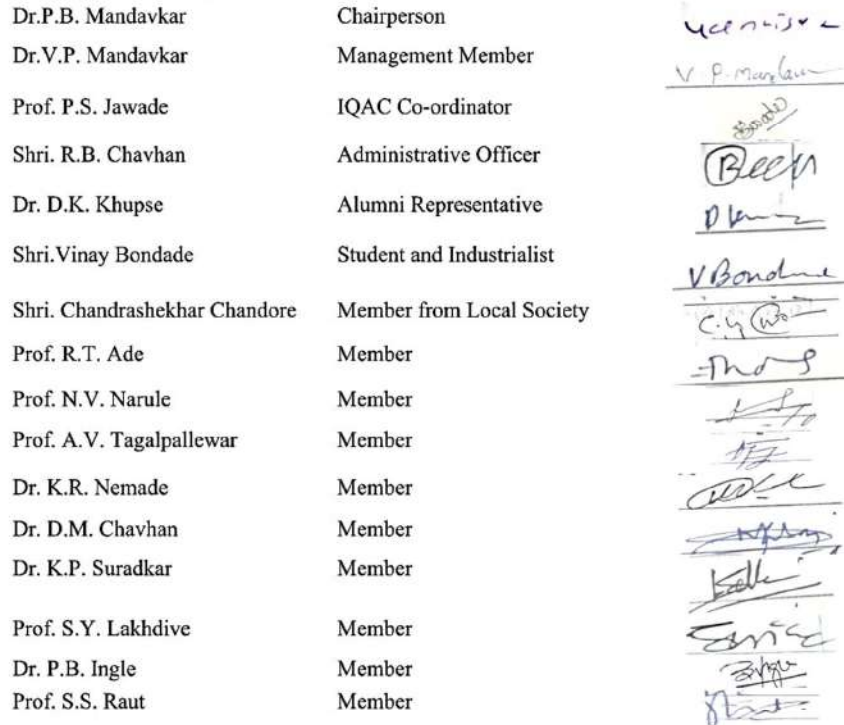 Dr.P.B. Mandavkar Chairperson
Dr.V.P. Mandavkar Management Member V.P. Mandavkar
Prof. P.S. Jawade IQAC Co-ordinator
Shri. R.B. Chavhan Administrative Officer
Dr. D.K. Khupse Alumni Representative
Shri.Vinay Bondade Student and Industrialist
Shri. Chandrashekhar Chandore Member from Local Society
Prof. R.T. Ade Member
Prof. N.V. Narule Member
Prof. A.V. Tagalpallewar Member
Dr. K.R. Nemade Member
Dr. D.M. Chavhan Member
Dr. K.P. Suradkar Member
Prof. S.Y. Lakhdive Member
Dr. P.B. Ingle Member
Prof. S.S. Raut Member